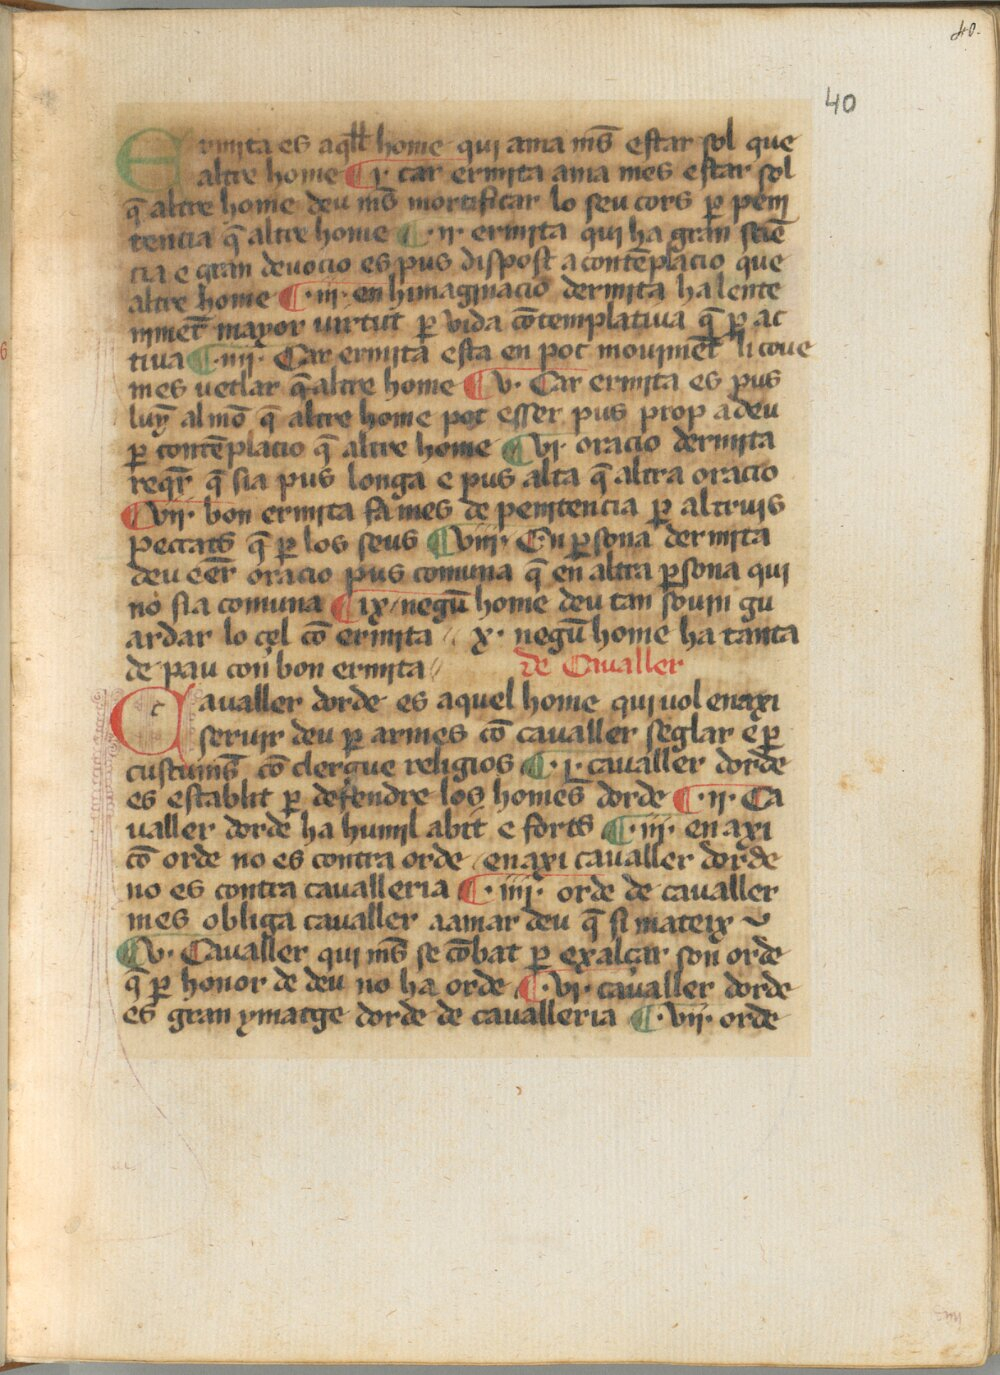 40.
40
Ermita es aq̄ll home qui ama mē̄s estar sol que
altre home ¶ ·i· car ermita ama mes estar sol
q̄ altre home deu mē̄s mortificar lo seu cors p̱ peni
tencia q̄ altre home ¶ ·ii· ermita qui ha gran sciē
cia e gran deuocio es pus dispost a contēplacio que
altre home ¶ ·iii· en himaginacio dermita ha lente
nimēt mayor uirtut p̱ vida cōtemplatiua q̄ p̱ ac
tiua ¶ ·iiii· Car ermita esta en poc mouimēt li coue
mes uetlar q̄ altre home ¶ v· Car ermita es pus
luȳ al mō q̄ altre home pot esser pus prop a deu
p̱ contēplacio q̄ altre home ¶ vi· oracio dermita
reqr̄ q̄ sia pus longa e pus alta q̄ altra oracio
¶ vii· bon ermita fa mes de penitencia p̱ altruis
peccats q̄ p̱ los seus ¶ viii· En p̱sona dermita
deu eēr oracio pus comuna q̄ en altra p̱sona qui
no sia comuna ¶ ix / negū home deu tan souin gu
ardar lo cel cō ermita // x· negū home ha tanta
de pau con bon ermita //
de Caualler
Caualler dorde es aquel home qui uol enaxi
seruir deu p̱ armes cō caualler seglar e p̱
custums̄ cō clergue religios ¶ ·i· caualler dorde
es establit p̱ defendre los homes dorde ¶ ·ii· Ca
ualler dorde ha humil abit e forts ¶ ·iii· en axi
cō orde no es contra orde / enaxi caualler dorde
no es contra caualleria ¶ ·iiii· orde de caualler
mes obliga caualler a amar deu q̄ si mateix
¶ v· Caualler qui mē̄s se cōbat p̱ exalçar son orde
q̄ p̱ honor de deu no ha orde ¶ ·vi· caualler dorde
es gran ymatge dorde de caualleria ¶ ·vii· orde